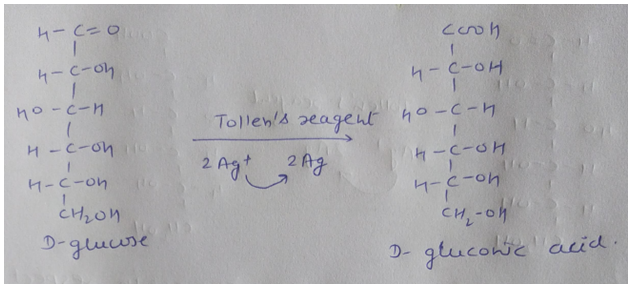 H - C = O
H - C - OH
HO - C - H
H - C - OH
H - C - OH
CH2OH
D-glucose
Tollen's reagent
2Ag+ 2Ag
COOH
H - C - OH
HO - C - H
H - C - OH
H - C - OH
CH2-OH
D- gluconic acid.